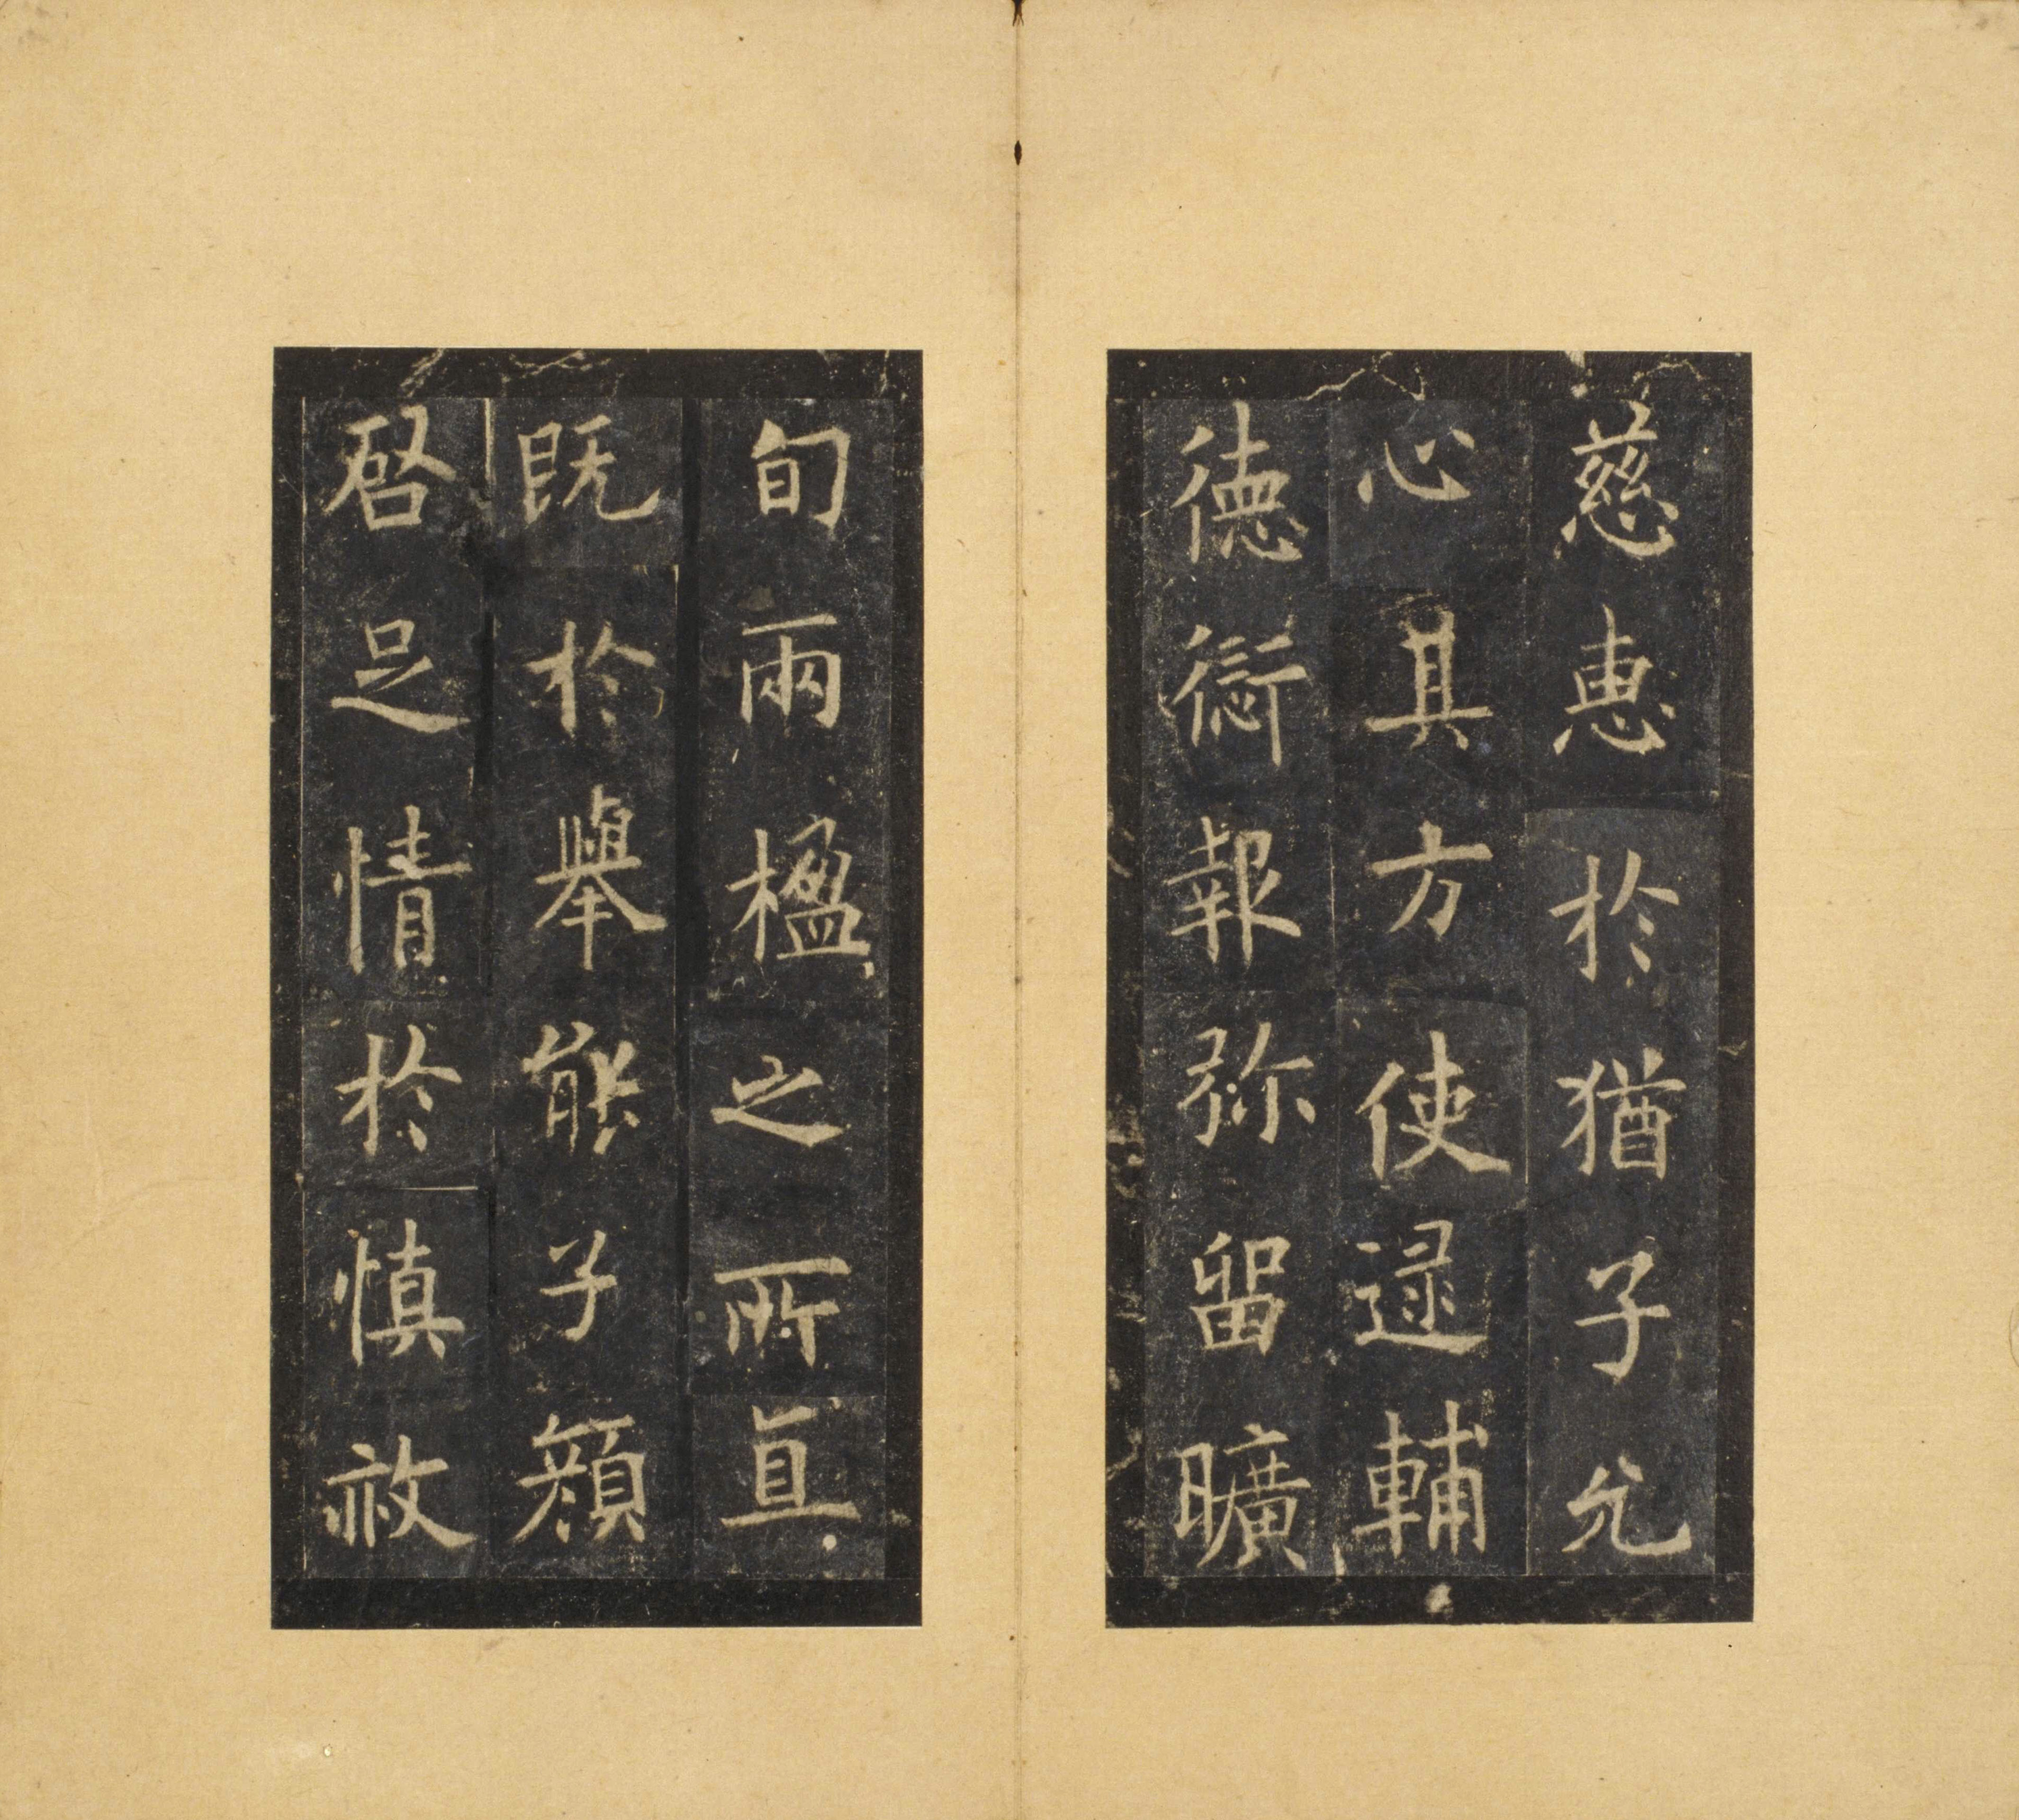 慈惠於猶子允
心其方使逯輔
德衟報弥留曠
旬兩楹之所直
既於舉能子顏
啓足情於慎赦